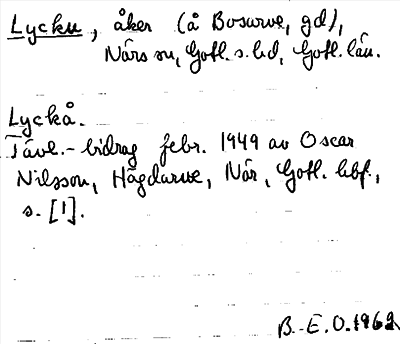 Lycku, åker (å Bosurve, gd),
Närs sn, Gotl. s. hd, Gotl. län.
Lyckå.
Tävl.-bidrag febr. 1949 av Oscar
Nilsson, Hägdarve, När, Gotl. hbf.,
s. [1].
B.-E. O. 1962